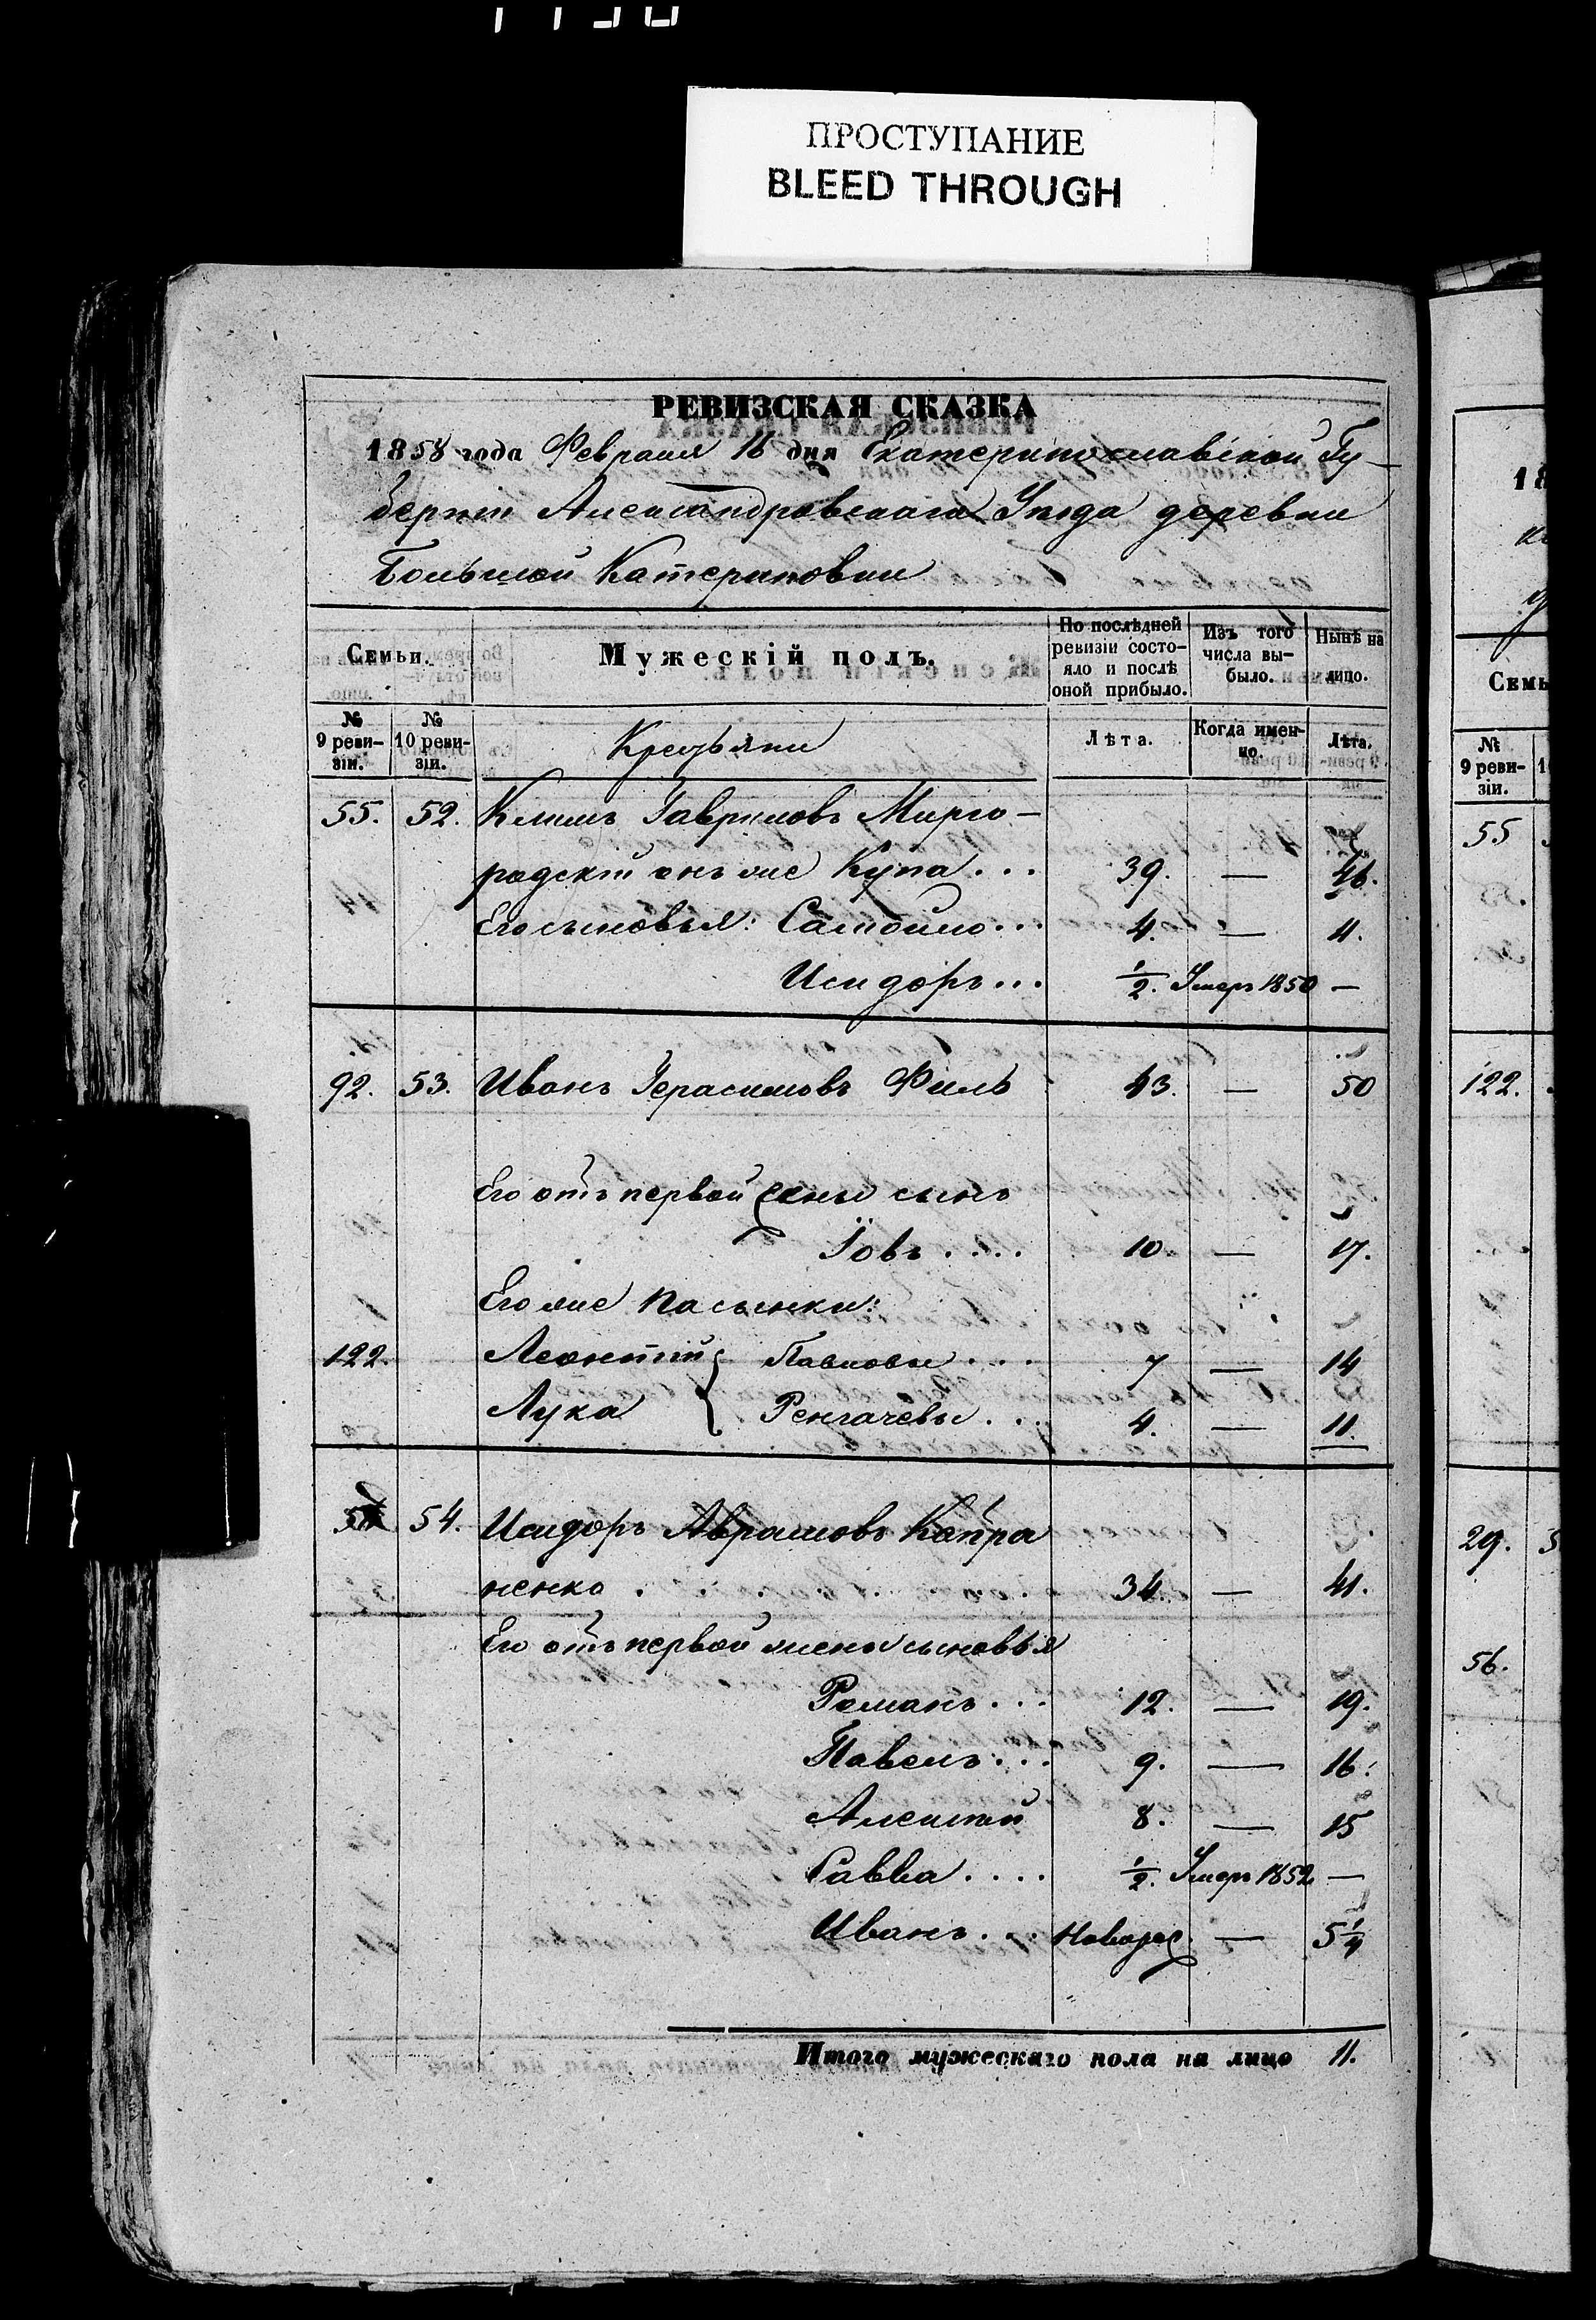 ПРОСТУПАНИЕ
BLEED THROUGH
РЕВИЗСКАЯ СКАЗКА
1858 года Февраля 16 дня Екатеринославской Гу-
берніи Александровскаго Уѣзда деревни
Большой Катериновки
Семьи. Мужескій полъ. По послѣдней ревизіи состояло и послѣ оной прибыло. Изъ того числа выбыло. Нынѣ на лицо.
№ 9 ревизіи. № 10 ревизіи. Крестьяни Лѣта. Когда именно. Лѣта.
55. 52. Климъ Гавриловъ Мирго-
родскій онъ же Купа... 39. — 46.
Его сыновья: Самойло... 4. — 11.
Исидоръ... 1/2. Умеръ 1850 —
92. 53. Иванъ Герасимовъ Филь 43. — 50
Его отъ первой жены сынъ
Іовъ.... 10. — 17.
Его же пасынки:
122. Леонтій } Павловы... 7 — 14
Лука } Ренгачевы... 4. — 11.
54. Исидоръ Аврамовъ Капра
ненко..... 34. — 41.
Его отъ первой жены сыновья
Романъ... 12. — 19.
Павелъ... 9. — 16.
Алексѣй 8. — 15
Савва.... 1/2. Умеръ 1852 —
Иванъ... Новорож. — 5 1/4
Итого мужескаго пола на лицо 11.
18
Семь
№ 9 реви-зіи.
55
122.
29.
56.